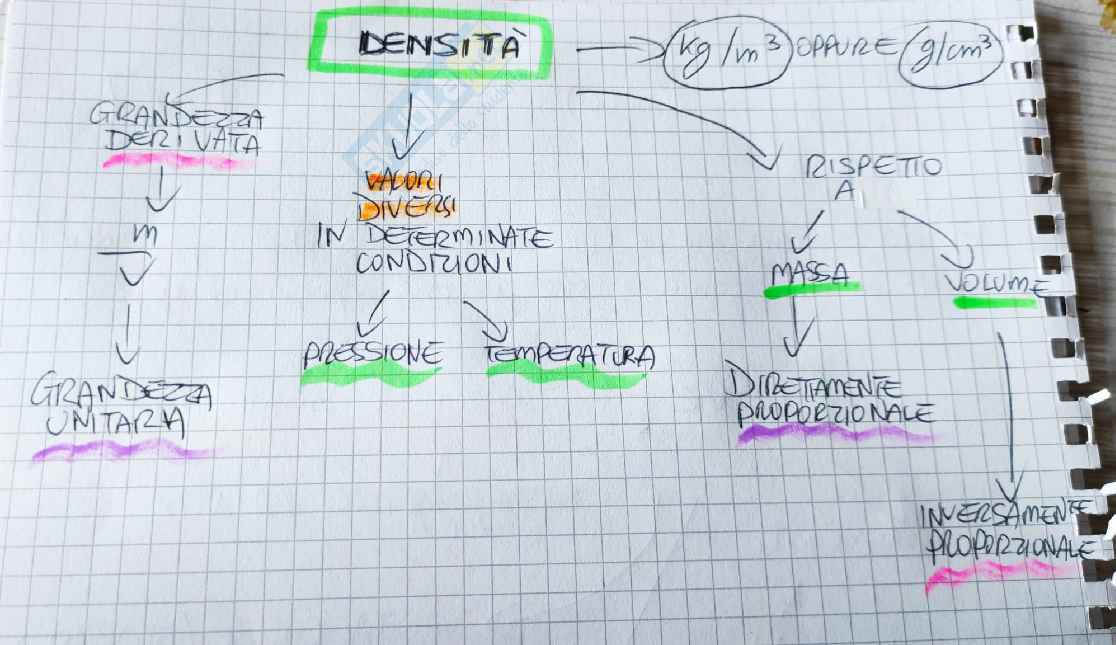 DENSITÀ
kg/m³ OPPURE g/cm³
GRANDEZZA
DERIVATA
m
V
GRANDEZZA
UNITARIA
VALORI
DIVERSI
IN DETERMINATE
CONDIZIONI
PRESSIONE
TEMPERATURA
RISPETTO
A
MASSA
VOLUME
DIRETTAMENTE
PROPORZIONALE
INVERSAMENTE
PROPORZIONALE